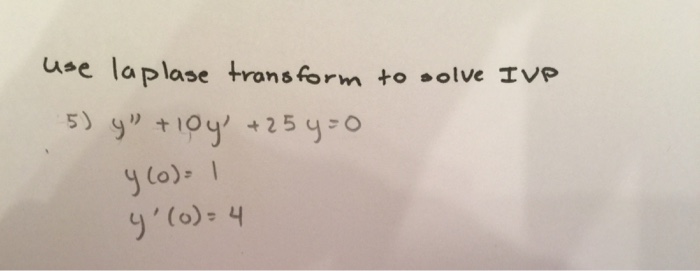 use laplase transform to solve IVP
5) y" + 10y' + 25y = 0
y(0) = 1
y'(0) = 4